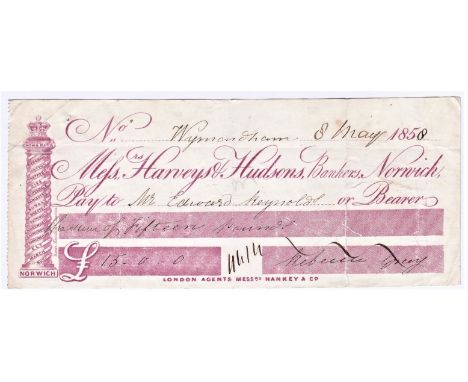 No. Wymondham 8 May 1858
Messrs Harveys & Hudsons, Bankers, Norwich,
Pay to Mr Edward Reynolds or Bearer
the sum of Fifteen pounds
£ 15-0-0 Rebecca Grey
NORWICH
LONDON AGENTS MESSRS HANKEY & CO